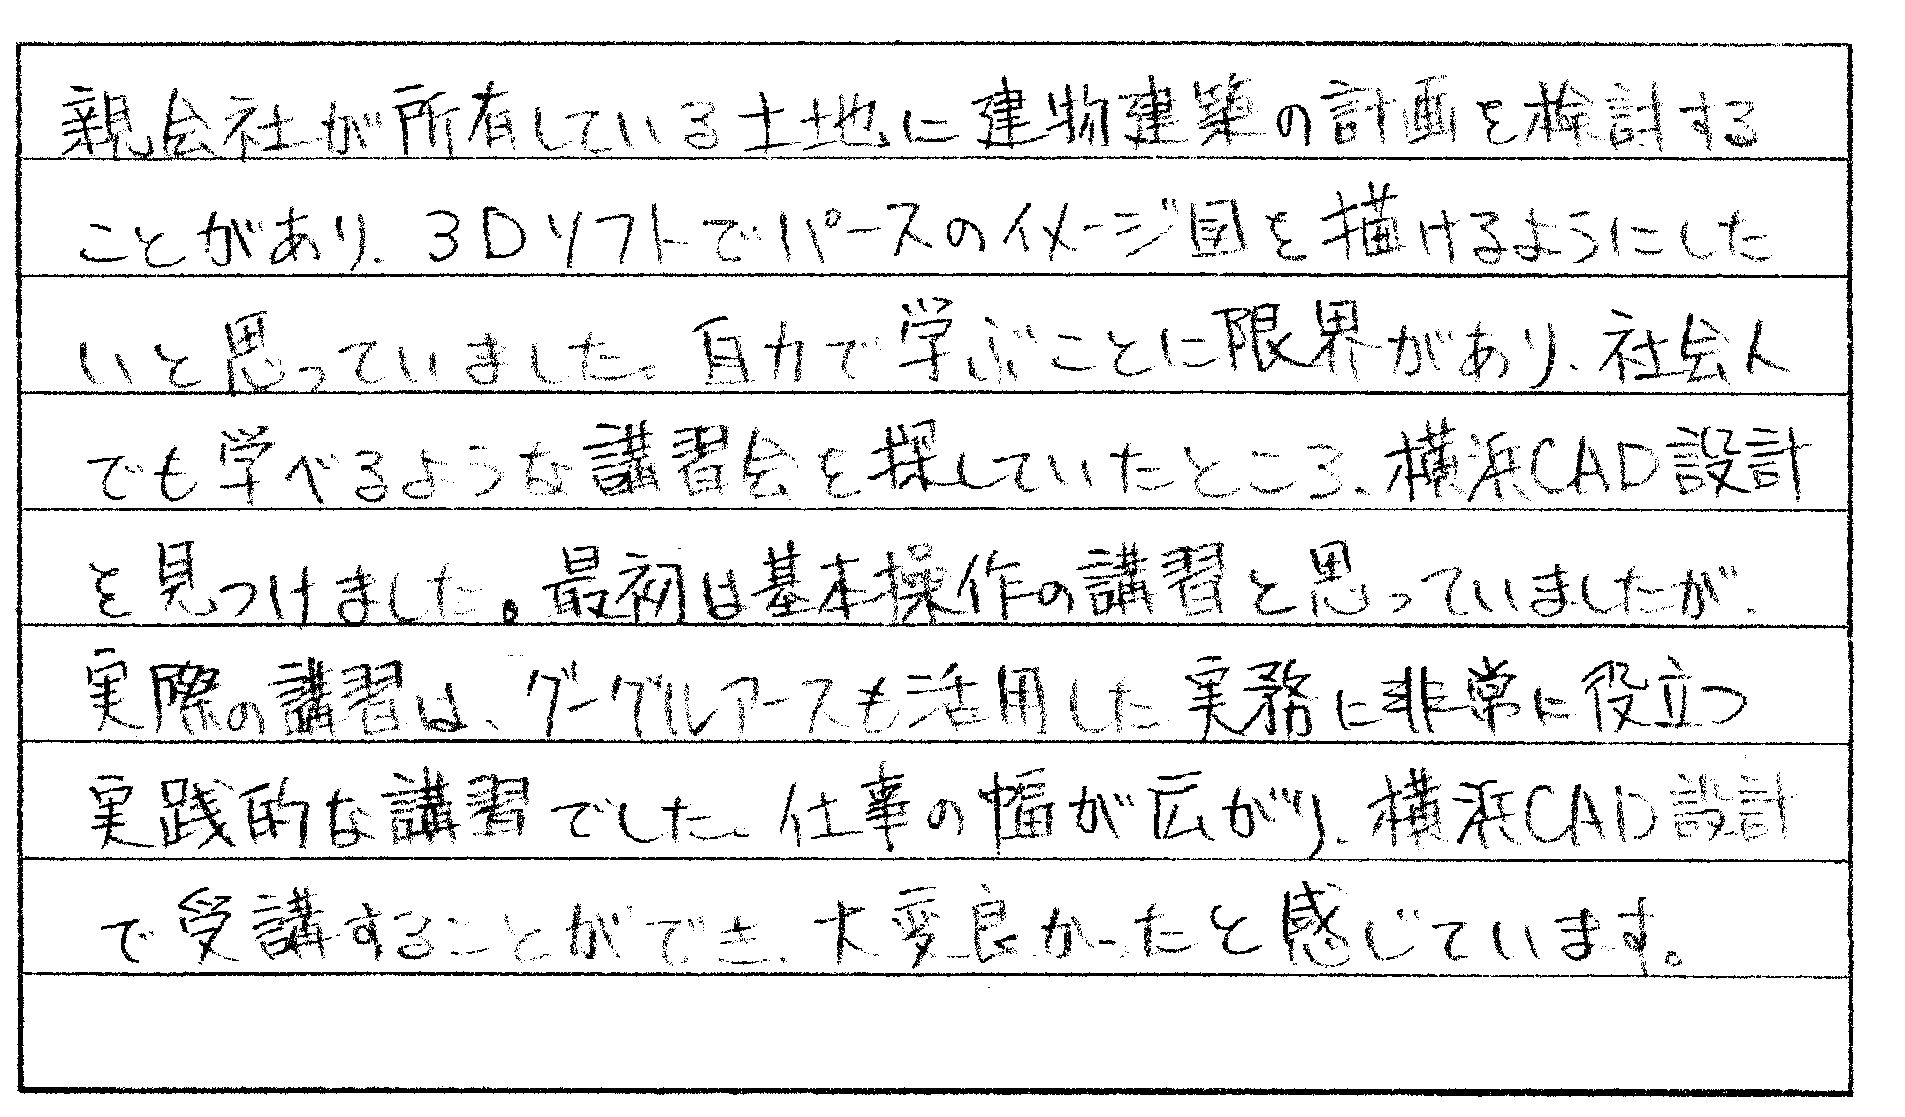 親会社が所有している土地に建物建築の計画を検討する
ことがあり、3Dソフトでパースのイメージ図を描けるようにした
いと思っていました。自力で学ぶことに限界があり、社会人
でも学べるような講習会を探していたところ、横浜CAD設計
を見つけました。最初は基本操作の講習と思っていましたが、
実際の講習は、グーグルアースも活用した実務に非常に役立つ
実践的な講習でした。仕事の幅が広がり、横浜CAD設計
で受講することができ、大変良かったと感じています。